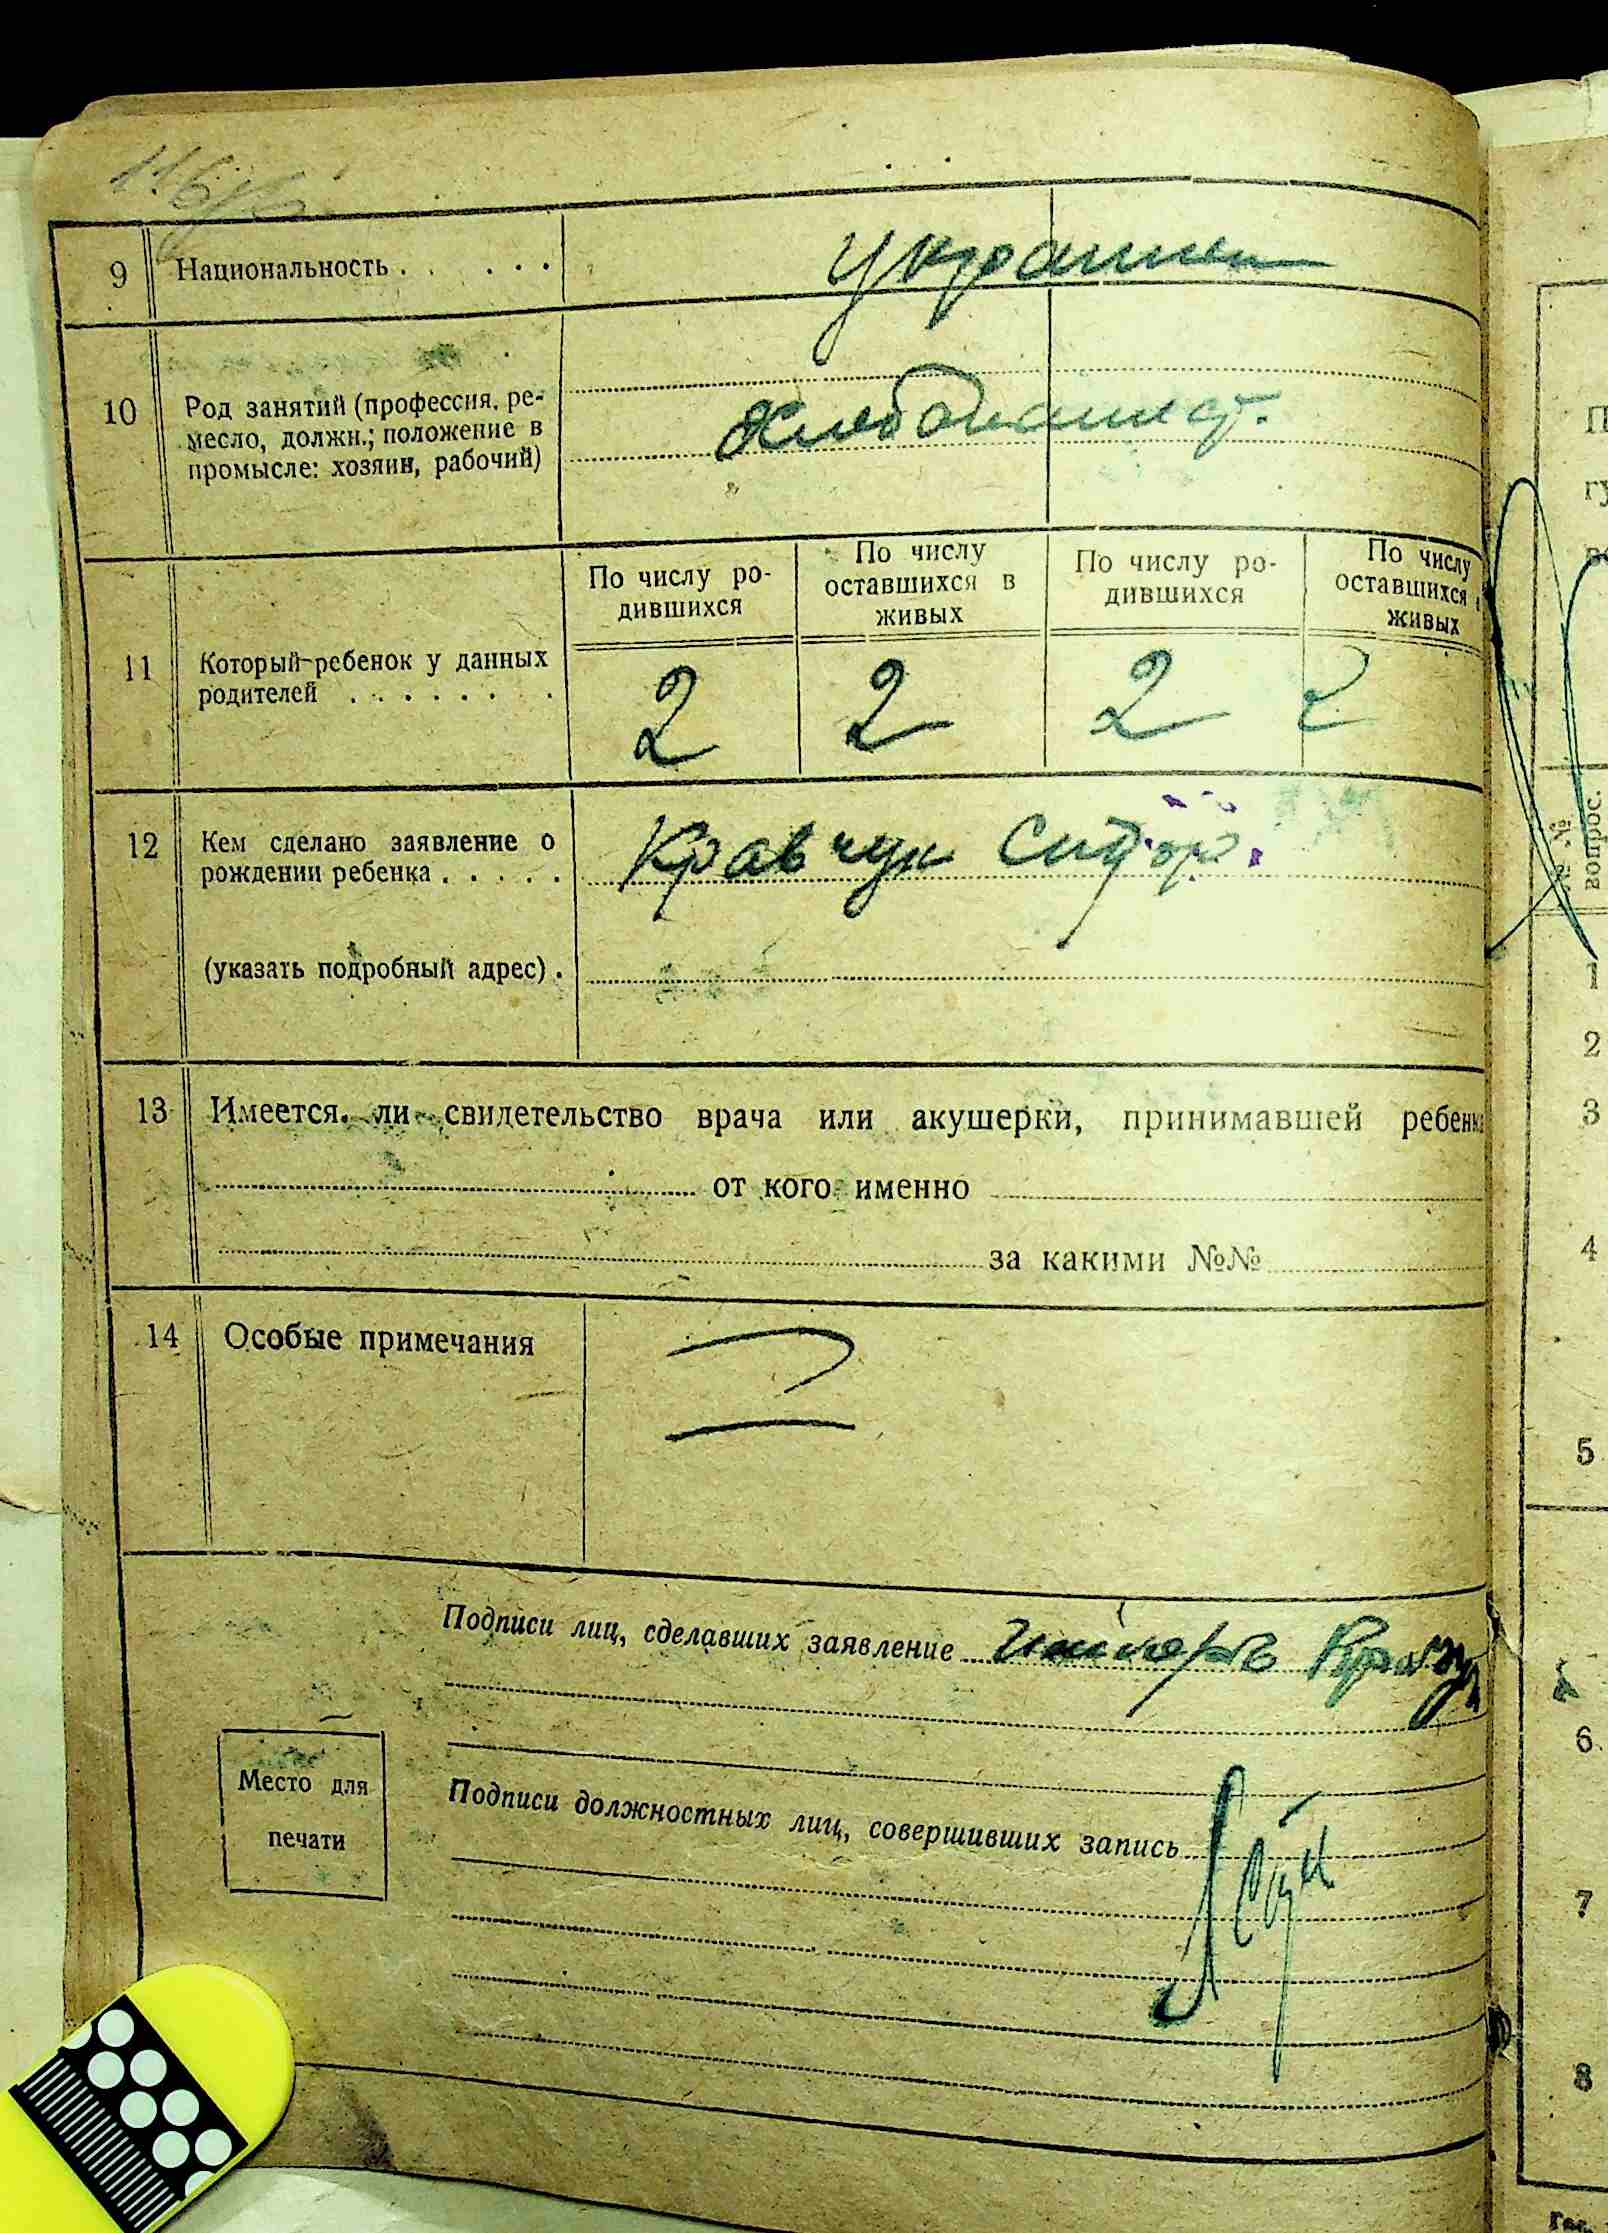 9 Национальность . . . . . .
10 Род занятий (профессия, ре-
месло, должн.; положение в
промысле: хозяин, рабочий)
хлебопашест.
По числу ро-
дившихся
По числу
оставшихся в
живых
По числу ро-
дившихся
По числу
оставшихся в
живых
11 Который ребенок у данных
родителей . . . . . . . .
2 2 2 2
12 Кем сделано заявление о
рождении ребенка . . . . .
Кравчук Сидор.
(указать подробный адрес) .
13 Имеется ли свидетельство врача или акушерки, принимавшей ребенка
от кого именно
за какими №№
14 Особые примечания
Подписи лиц, сделавших заявление
Подписи должностных лиц, совершивших запись
Место для
печати
№ №
вопрос.
1
2
3
4
5
6
7
8